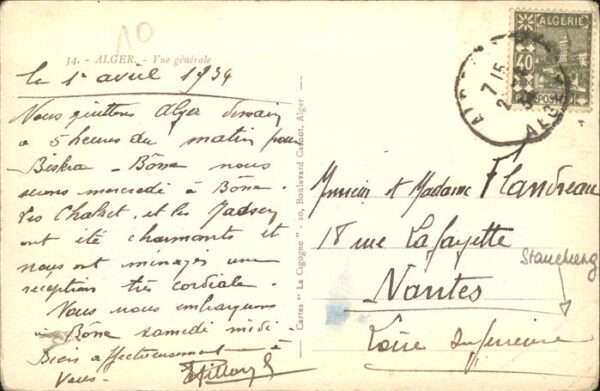 10
34. - ALGER. - Vue générale
le 1er avril 1934
Nous quittons Alger demain
à 5 heures du matin pour
Biskra - Bône nous
serons mercredi à Bône.
Les Chalset et les
ont été charmants et
nous ont ménagés une
réception très cordiale.
Nous nous embarquons
Bône samedi midi.
Bien affectueusement à
Vous.
Cartes "La Cigogne" - 10, Boulevard Carnot, Alger
ALGÉRIE
40
POSTES
7 15
2
ALGER
Monsieur et Madame Flandreau
18 rue Lafayette
Nantes
Loire Inférieure